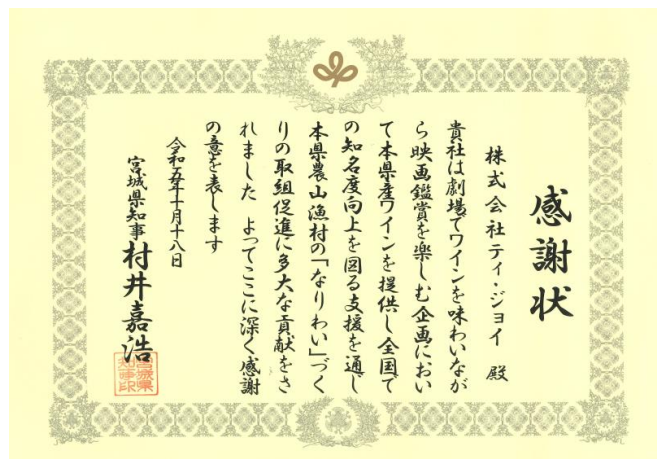 感謝状
株式会社ティ・ジョイ 殿
貴社は劇場でワインを味わいなが
ら映画鑑賞を楽しむ企画におい
て本県産ワインを提供し全国で
の知名度向上を図る支援を通じ
本県農山漁村の「なりわい」づく
りの取組促進に多大な貢献をさ
れました よってここに深く感謝
の意を表します
令和五年十月十八日
宮城県知事 村井嘉浩
宮城県知事印